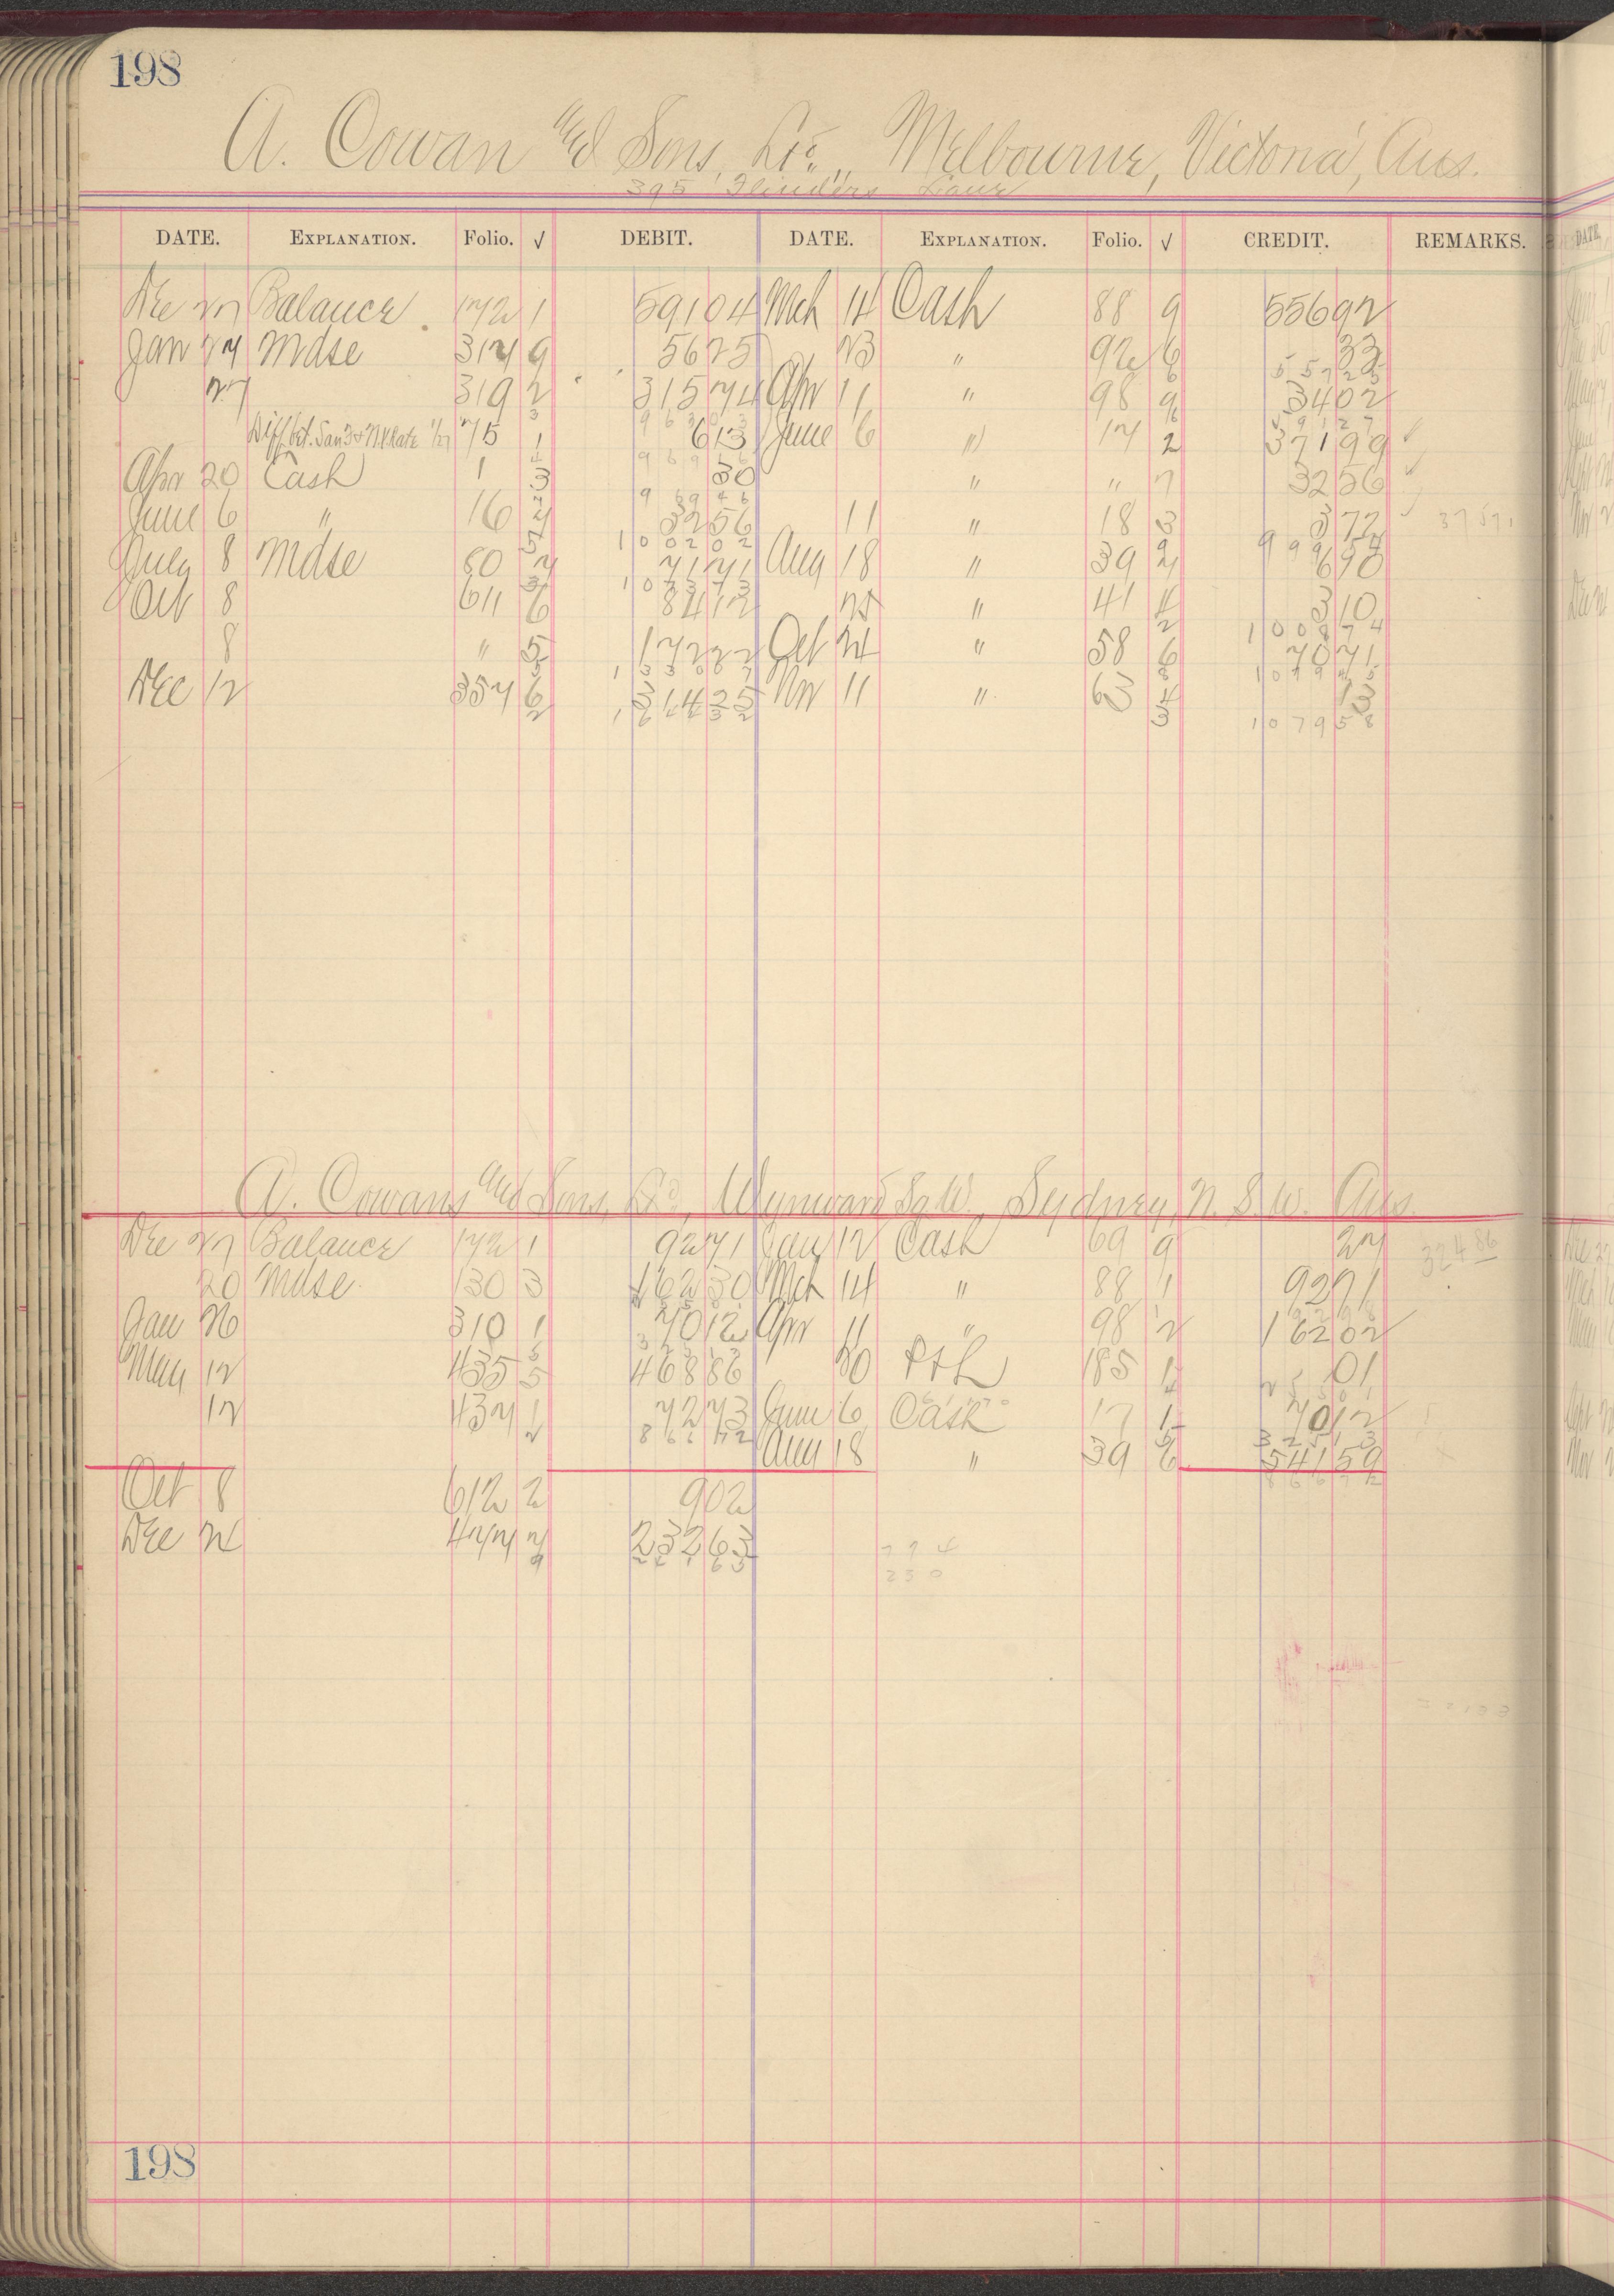 198
A. Cowan and Sons, Ltd., Melbourne, Victoria, Aus.
395 Flinders Lane
DATE. EXPLANATION. Folio. √ DEBIT. DATE. EXPLANATION. Folio. √ CREDIT. REMARKS.
Dec 27 Balance 172 1 591 04 Mch 14 Cash 88 9 556 92
Jan 24 Mdse 314 9 56 25 23 " 92 6 33
557 25
27 319 2 315 74 Apr 11 " 98 9 34 02
963 03 591 27
Diff bet. San F & N.Y. Rate 1/27 75 1 6 13 June 6 " 17 2 371 99 √
969 16
Apr 20 Cash 1 3 30 " " 7 32 56 √
969 46
June 6 " 16 7 32 56 11 " 18 3 3 72 √ 37571
1002 02 999 54
July 8 Mdse 50 7 71 71 Aug 18 " 39 2 6 90
1073 73
Oct 8 611 6 84 12 25 " 41 4 3 10
1008 74
8 " 5 172 22 Oct 24 " 58 6 70 71
1330 07 1079 45
Dec 12 357 6 314 25 Nov 11 " 63 4 13
1644 32 1079 58
A. Cowans and Sons, Ld., Wynward Sq W., Sydney, N.S.W. Aus.
Dec 27 Balance 172 1 92 71 Jan 12 Cash 69 9 27 324 86
20 Mdse 130 3 162 30 Mch 14 " 88 1 92 71
Jan 26 310 1 70 12 Apr 11 " 98 2 162 02
May 12 435 5 468 86 20 P & L 185 1 01
12 437 1 72 73 June 6 Cash 17 1 70 12
866 72 325 13
Aug 18 " 39 6 541 59
866 72
Oct 8 612 2 9 02
Dec 24 477 7 232 63
774
230
198